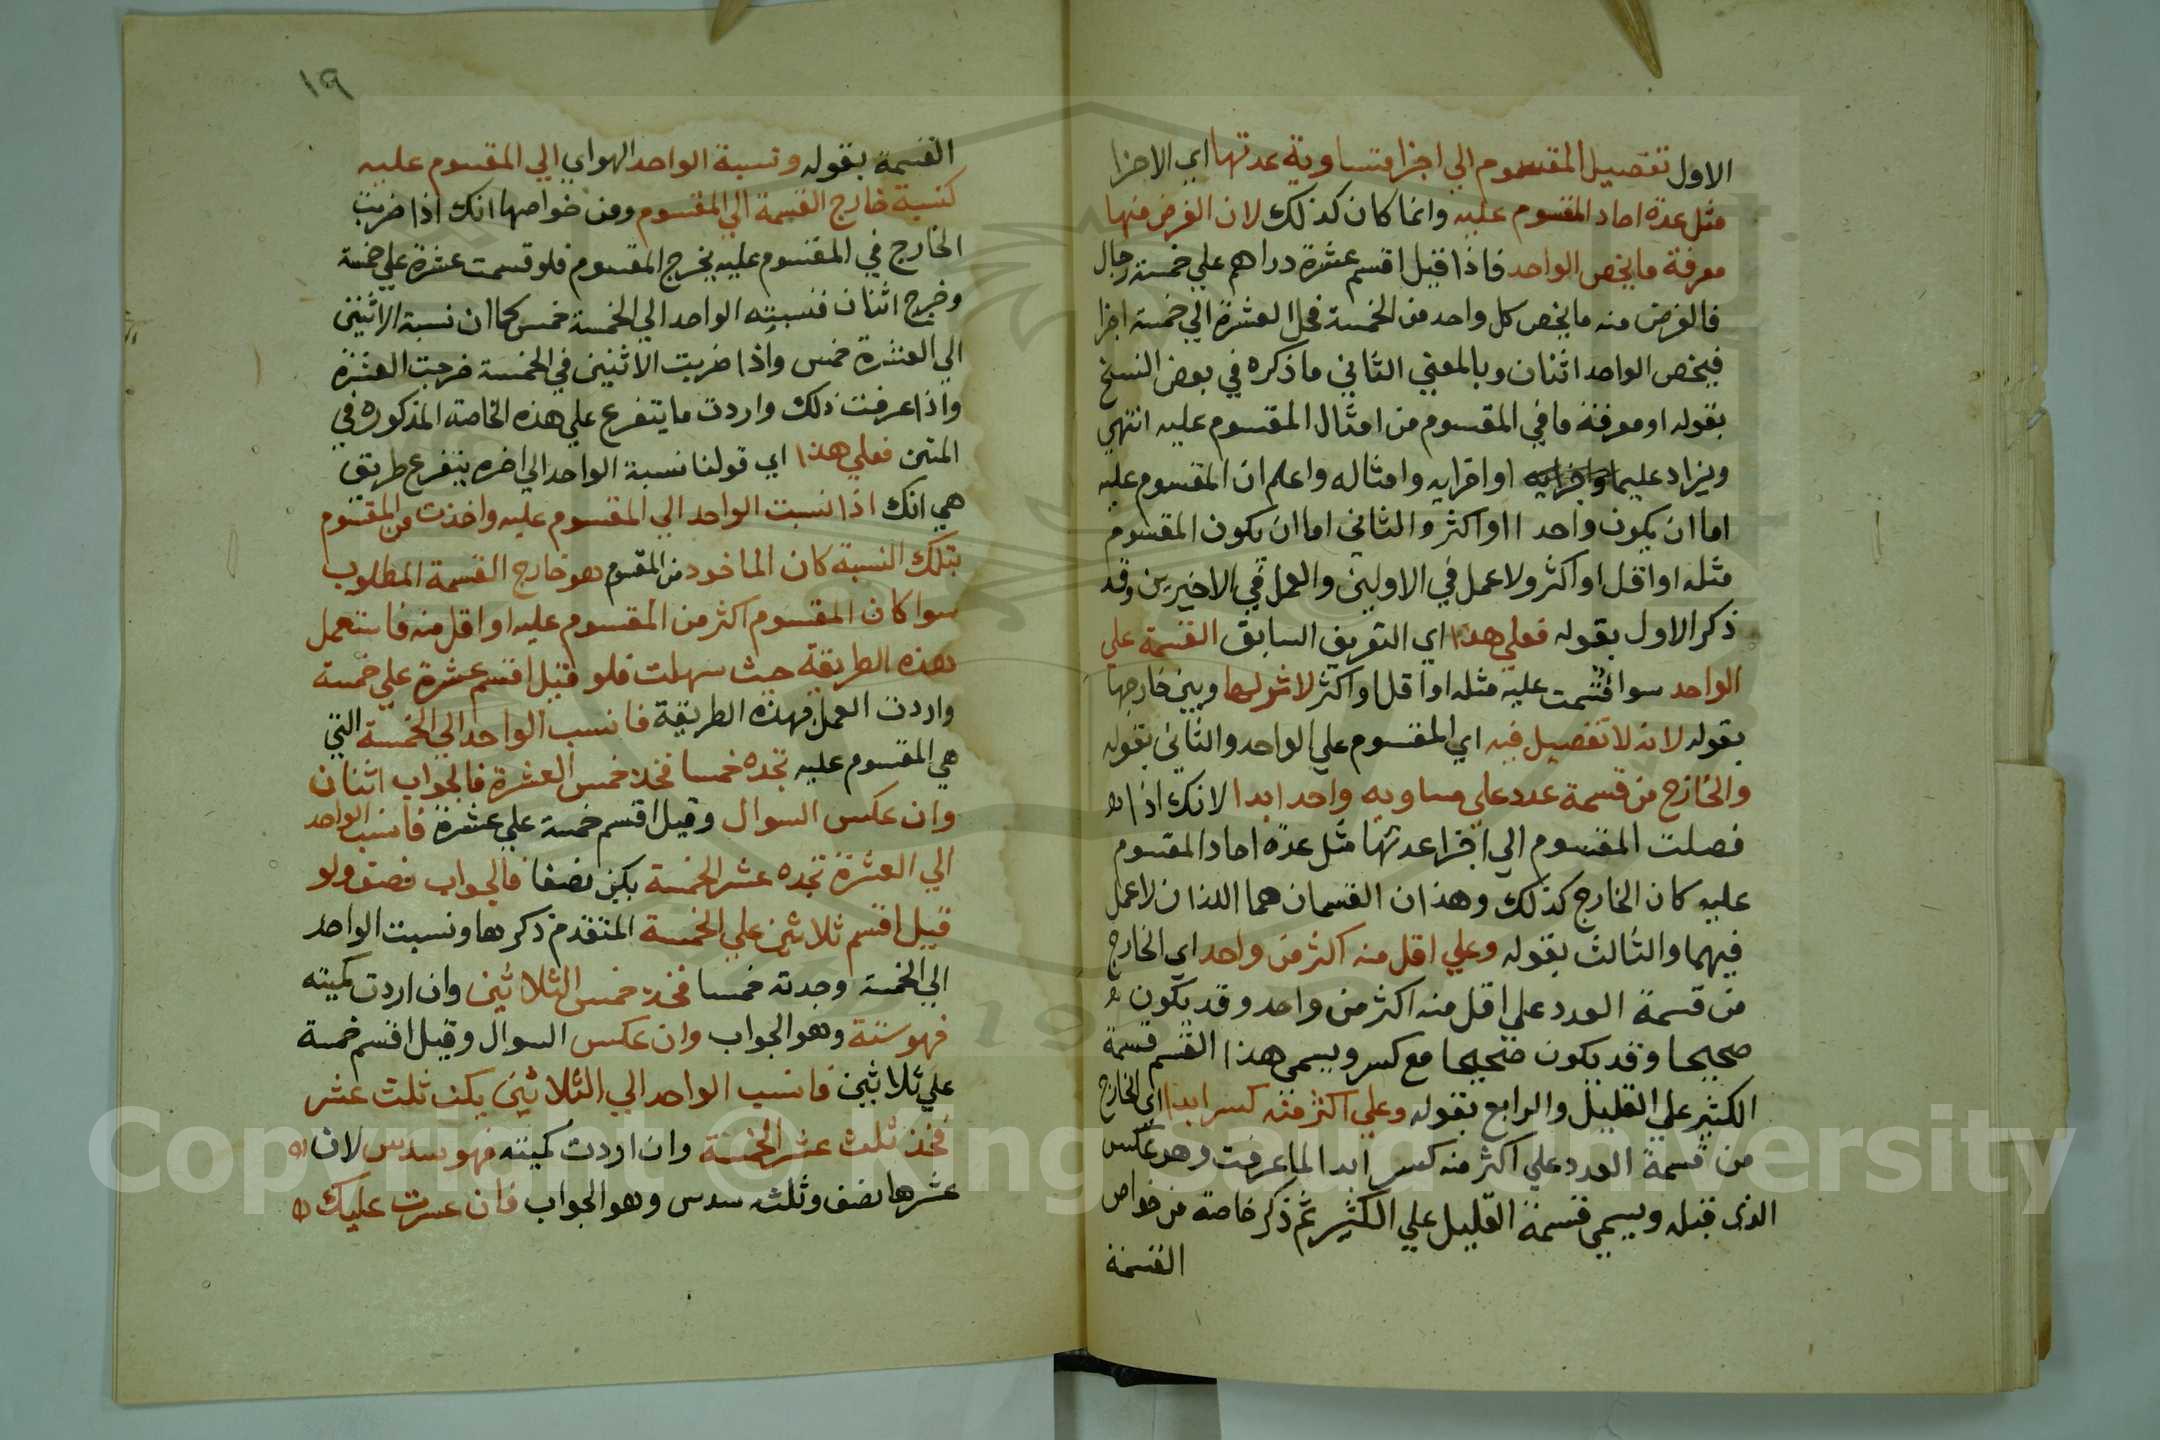 الاول تفصيل المقسوم الي اجزا متساوية عدتها اي الاجزا
مثل عدة احاد المقسوم عليه وانما كان كذلك لان الغرض منها
معرفة ما يخص الواحد فاذا قيل اقسم عشرة دراهم علي خمسة رجال
فالغرض منه ما يخص كل واحد من الخمسة فحل العشرة الي خمسة اجزا
فيخص الواحد اثنان وبالمعني الثاني ما ذكره في بعض النسخ
بقوله او معرفة ما في المقسوم من امثال المقسوم عليه انتهي
ويزاد عليها او اجزايه وامثاله واعلم ان المقسوم عليه
اما ان يكون واحدا او اكثر والثاني اما ان يكون المقسوم
مثله او اقل او اكثر ولا عمل في الاولين والعمل في الاخيرين وقد
ذكر الاول بقوله فعلي هذا اي التعريف السابق القسمة علي
الواحد سوا قسمت عليه مثله او اقل او اكثر لا اثر لها وبين خارجها
بقوله لانه لا تفصيل فيه اي المقسوم علي الواحد والثاني بقوله
والخارج من قسمة عدد علي مساويه واحد ابدا لانك اذا
فصلت المقسوم الي اجزا عدتها مثل عدة احاد المقسوم
عليه كان الخارج كذلك وهذان القسمان هما اللذان لا عمل
فيهما والثالث بقوله وعلي اقل منه اكثر من واحد اي الخارج
من قسمة العدد علي اقل منه اكثر من واحد وقد يكون
صحيحا وقد يكون صحيحا مع كسر ويسمي هذا القسم قسمة
الكثير علي القليل والرابع بقوله وعلي اكثر منه كسر ابدا اي الخارج
من قسمة العدد علي اكثر منه كسر ابدا لما عرفت وهو عكس
الذي قبله ويسمي قسمة القليل علي الكثير ثم ذكر خاصة من خواص
القسمة
١٩
القسمة بقوله ونسبة الواحد الهواي الي المقسوم عليه
كنسبة خارج القسمة الي المقسوم ومن خواصها انك اذا ضربت
الخارج في المقسوم عليه يخرج المقسوم فلو قسمت عشرة علي خمسة
وخرج اثنان فنسبته الواحد الي الخمسة خمس كما ان نسبة الاثنين
الي العشرة خمس واذا ضربت الاثنين في الخمسة خرجت العشرة
واذا عرفت ذلك واردت ما يتفرع علي هذه الخاصة المذكورة في
المتن فعلي هذا اي قولنا نسبة الواحد الي اخره يتفرع طريق
هي انك اذا نسبت الواحد الي المقسوم عليه واخذت من المقسوم
بتلك النسبة كان الماخوذ من المقسوم هو خارج القسمة المطلوب
سوا كان المقسوم اكثر من المقسوم عليه او اقل منه فاستعمل
هذه الطريقة حيث سهلت فلو قيل اقسم عشرة علي خمسة
واردت العمل بهذه الطريقة فانسب الواحد الي الخمسة التي
هي المقسوم عليه تجده خمسا فخذ خمس العشرة فالجواب اثنان
وان عكس السوال وقيل اقسم خمسة علي عشرة فانسب الواحد
الي العشرة تجده عشر الخمسة يكن نصفا فالجواب نصف ولو
قيل اقسم ثلاثين علي الخمسة المتقدم ذكرها ونسبت الواحد
الي الخمسة وجدته خمسا فخذ خمس الثلاثين وان اردت كميته
فهو ستة وهو الجواب وان عكس السوال وقيل اقسم خمسة
علي ثلاثين فانسب الواحد الي الثلاثين يكن ثلث عشر
فخذ ثلث عشر الخمسة وان اردت كميته فهو سدس لان
عشرها نصف وثلثه سدس وهو الجواب فان عسرت عليك
Copyright © King Saud University